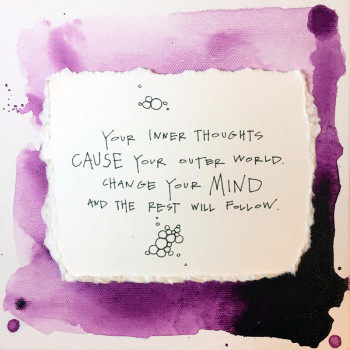 YOUR INNER THOUGHTS
CAUSE YOUR OUTER WORLD.
CHANGE YOUR MIND
AND THE REST WILL FOLLOW.